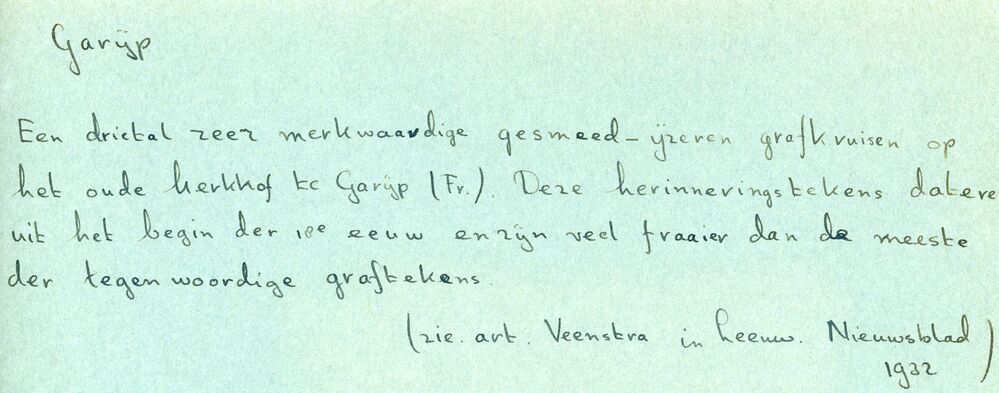 Garijp
Een drietal zeer merkwaardige gesmeed-ijzeren grafkruisen op
het oude kerkhof te Garijp (Fr.). Deze herinneringstekens datere
uit het begin der 18e eeuw en zijn veel fraaier dan de meeste
der tegenwoordige graftekens.
(zie. art. Veenstra in Leeuw. Nieuwsblad)
1932